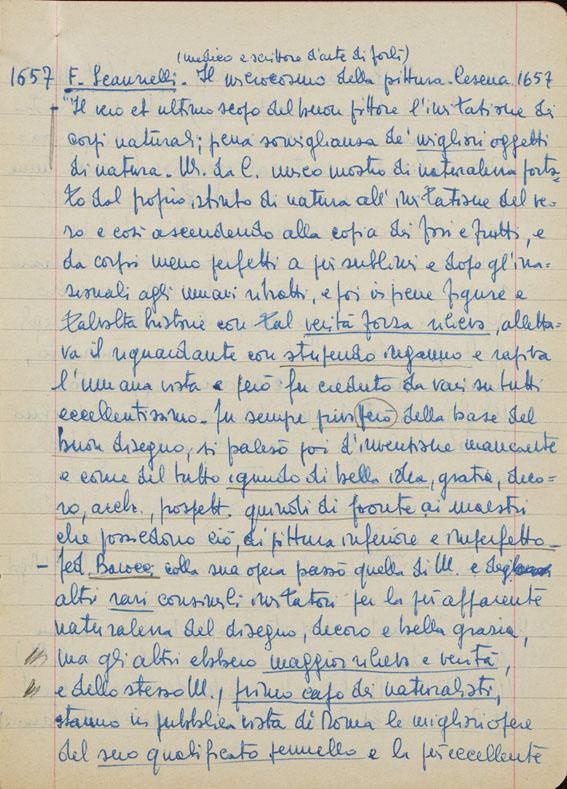 (medico e scrittore d'arte di Forlì)
1657 F. Scannelli. Il microcosmo della pittura. Cesena 1657
- "Il vero et ultimo scopo del buon pittore l'imitatione di
corpi naturali; pena somiglianza de' migliori oggetti
di natura. M. da C. unico mostro di naturalezza porta-
to dal proprio istinto di natura all'imitatione del ve-
ro e così ascendendo alla copia dei fiori e frutti, e
da corpi meno perfetti a più sublimi e dopo gl'irra-
zionali agli umani ritratti, e poi intere figure e
talvolta historie con tal verità forza rilievo, alletta-
va il riguardante con stupendo inganno e rapiva
l'umana vista e però fu creduto da vari su tutti
eccellentissimo. Fu sempre privo però della base del
buon disegno, si palesò poi d'inventione mancante
e come del tutto ignudo di bella idea, gratia, deco-
ro, arch., prospett. quindi di fronte ai maestri
che possedono ciò, di pittura inferiore e imperfetta.
- Fed. Barocci colla sua opera passò quella di M. e degl
altri rari consimili imitatori per la più apparente
naturalezza del disegno, decoro e bella grazia,
ma gli altri ebbero maggior rilievo e verità,
e dello stesso M., primo capo dei naturalisti,
stanno in pubblica vista di Roma le migliori opere
del suo qualificato pennello e la più eccellente